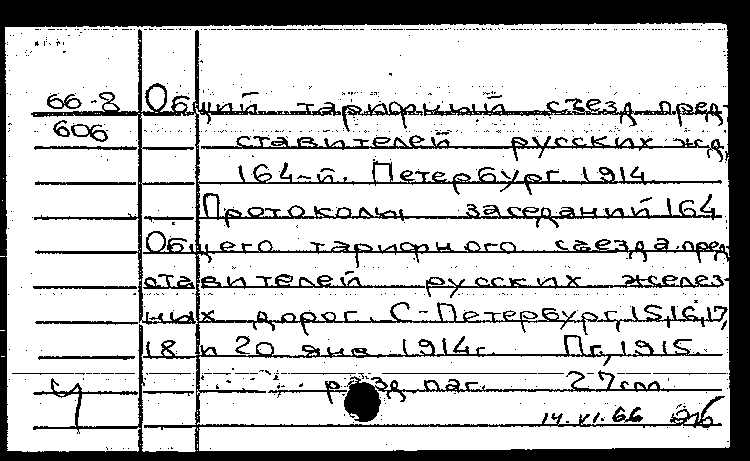 66-8 Общий тарифный съезд пред-
606 ставителей русских жд.
164-й. Петербург. 1914
Протоколы заседаний 164
Общего тарифного съезда пред-
ставителей русских желез-
ных дорог. С-Петербург, 15,16,17,
18 и 20 янв. 1914г. Пг., 1915.
разд. паг. 27см
14.VI.66